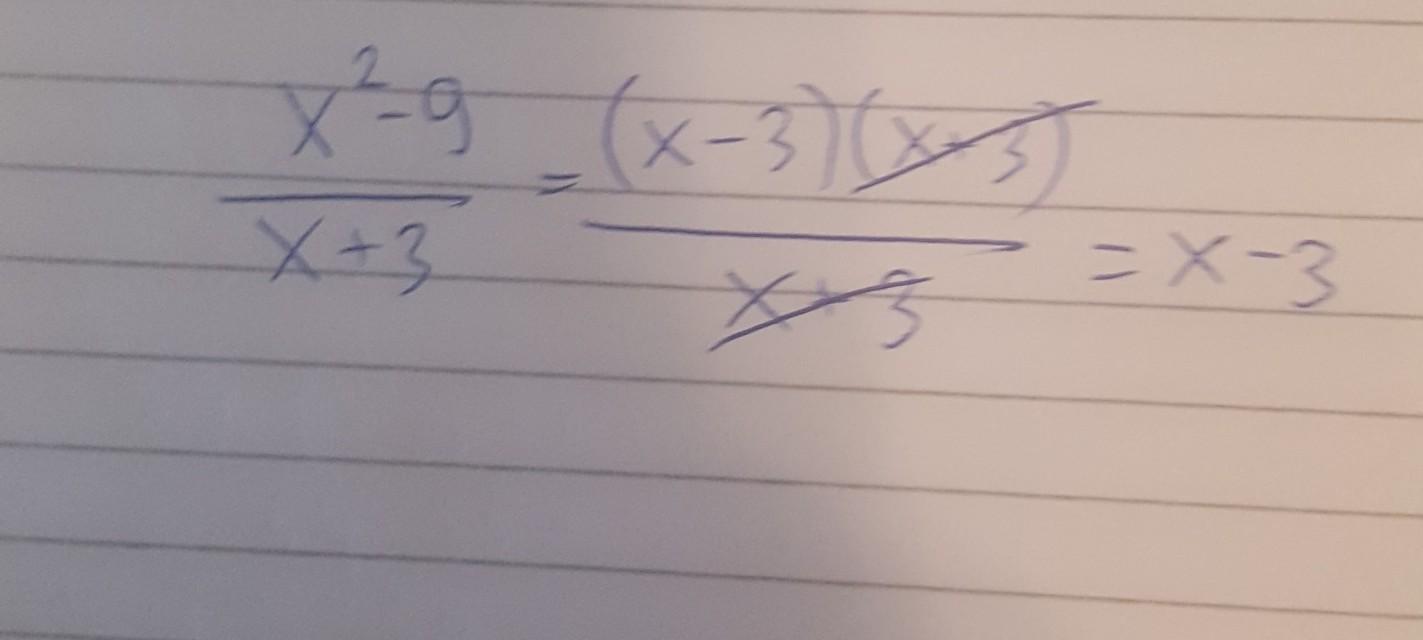 x²-9 / x+3 = (x-3)(x+3) / x+3 = x-3